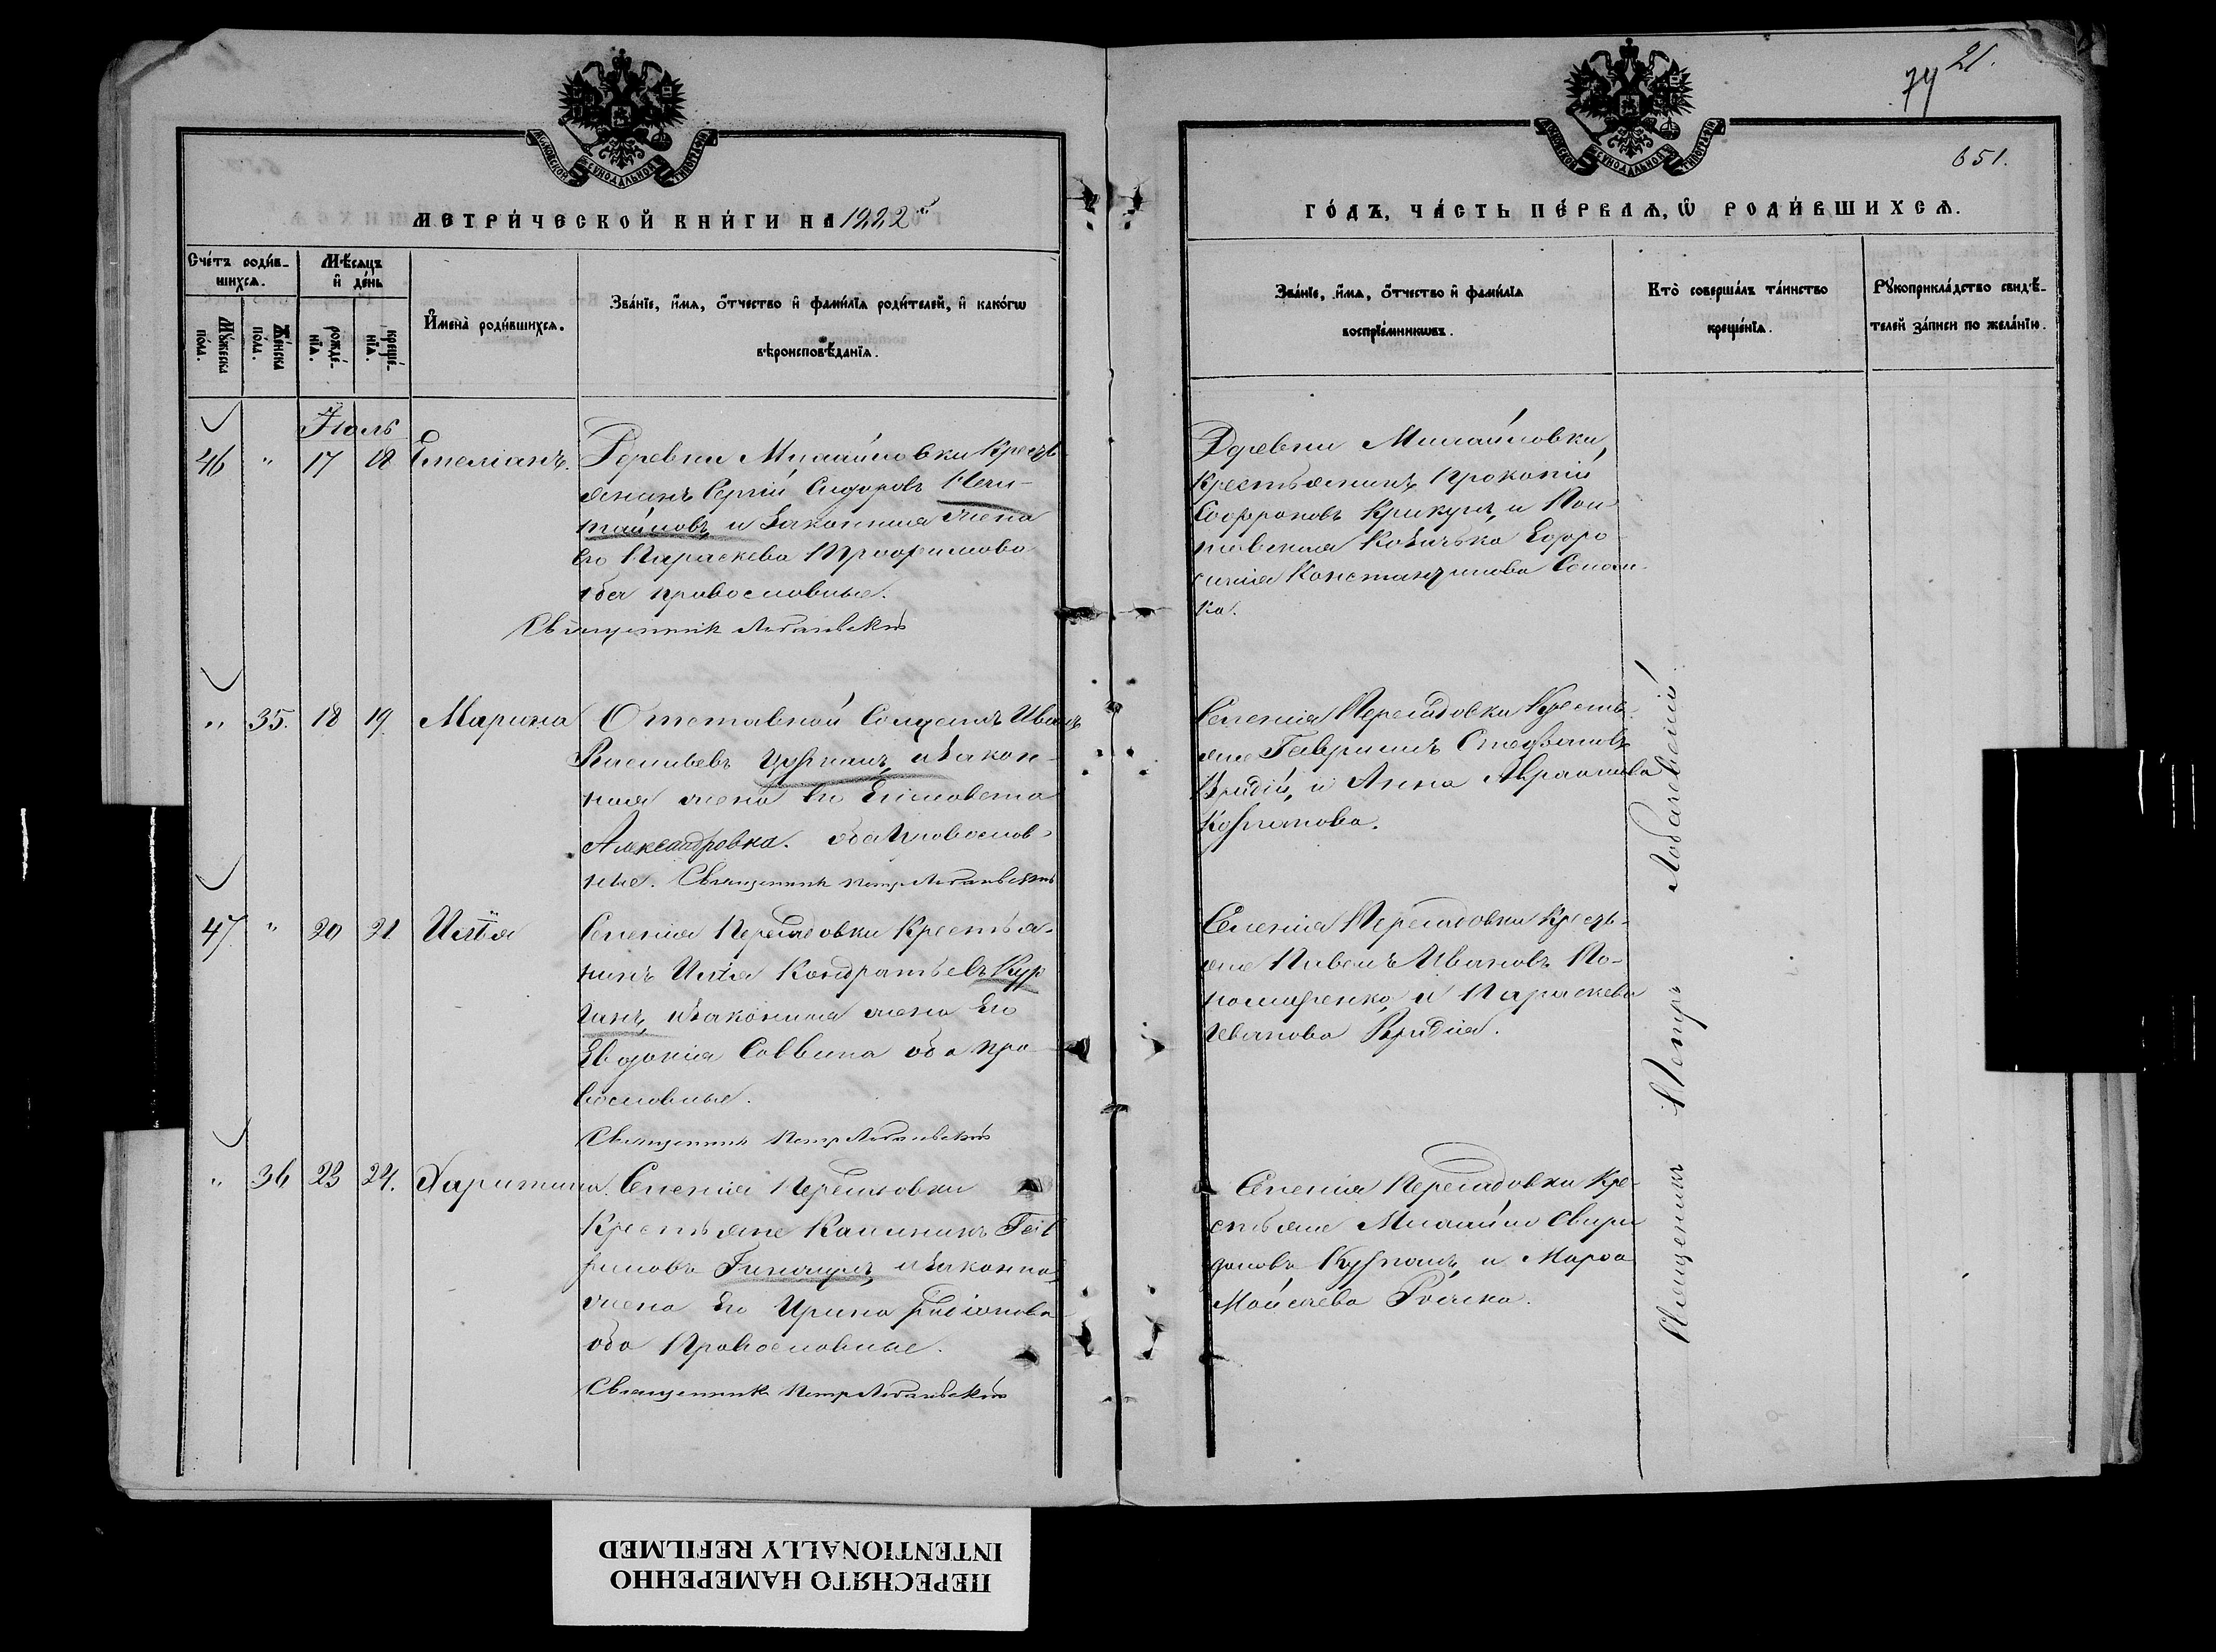 21.
74
651.
МОСКОВСКОЙ СѴНОДАЛЬНОЙ ТИПОГРАФІИ
МОСКОВСКОЙ СѴНОДАЛЬНОЙ ТИПОГРАФІИ
МЕТРИ́ЧЕСКОЙ КНИ́ГИ НА 1882 й
ГО́ДЪ, ЧА́СТЬ ПЕ́РВАѦ, Ѡ҆ РОДИ́ВШИХСѦ.
Сче́тъ роди́в-
шихсѧ.
Мѣ́сѧцъ
и҆ де́нь
Мꙋ́жеска
по́ла.
Же́нска
по́ла.
рожде́-
нїѧ.
креще́-
нїѧ.
И҆мена̀ роди́вшихсѧ.
Зва́нїе, и҆́мѧ, о҆́тчество и҆ фами́лїѧ роди́телей, и҆ како́гѡ
вѣроисповѣ́данїѧ.
Зва́нїе, и҆́мѧ, о҆́тчество и҆ фами́лїѧ
воспрїе́мникѡвъ.
Кто̀ соверша́лъ та́инство
креще́нїѧ.
Рꙋкоприкла́дство свидѣ́-
телей за́писи по жела́нїю.
Іюль
46 " 17 18 Емеліанъ.
Деревни Михайловки Кресть
янинъ Сергій Сидоровъ
и законная жена
Его Параскева Трофимова
оба православные.
Священникъ Лобачевскій
Деревни Михайловки,
Крестьянинъ Прокопій
Софроновъ Крикунъ, и
Козачька Ефро
синія Константинова
ка.
" 35. 18 19. Марина
Отставной Солдатъ Иванъ
Васильевъ Цурканъ, и закон-
ная жена Его Елисавета
Александровна. оба Православ-
ные. Священникъ Петръ Лобачевскій
Селенія Пересадовки Кресть-
яне Гавріилъ Стефановъ
и Анна Авраамова
Курганова.
47. " 20 21 Илія
Селенія Пересадовки Крестья-
нинъ Илія Кондратьевъ Кур
ганъ, и законная жена Его
Евдокія Саввина оба пра-
вославные.
Священникъ Петръ Лобачевскій
Селенія Пересадовки Кресть-
яне Павелъ Ивановъ По-
номаренко, и Параскева
Иванова
" 36 23 24. Харитина.
Селенія Пересадовки
Крестьяне Калиникъ Гав
риловъ и законная
жена Его Ирина Родіонова
оба Православные.
Священникъ Петръ Лобачевскій
Селенія Пересадовки Кре-
стьяне Михаилъ Свири
доновъ Курганъ, и Марфа
Мойсеева
Священникъ Петръ Лобачевскій
ПЕРЕСНЯТО НАМЕРЕННО
INTENTIONALLY REFILMED